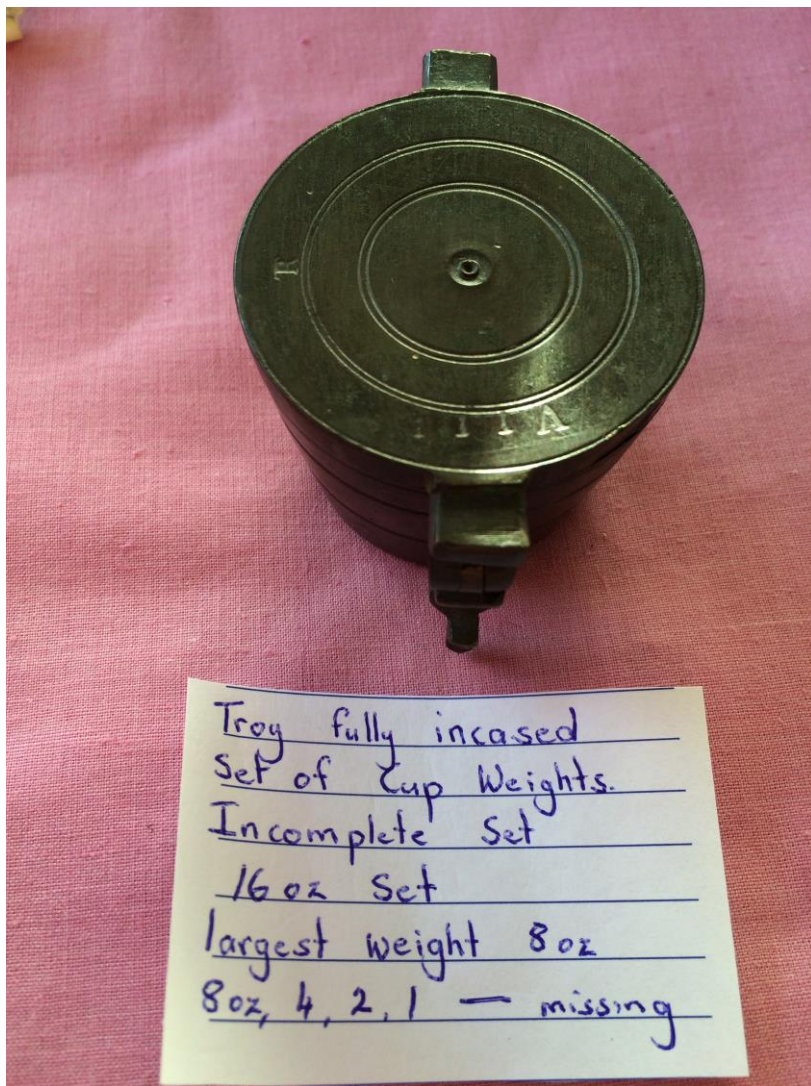 VIII
Troy fully incased
Set of Cup Weights.
Incomplete Set
16 oz Set
largest weight 8 oz
8 oz, 4, 2, 1 — missing